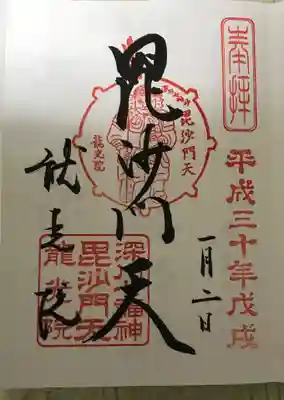 奉拝
平成三十年戊戌
一月二日
毘沙門天
毘沙門天
龍光院
深川七福神
毘沙門天
龍光院
龍光院